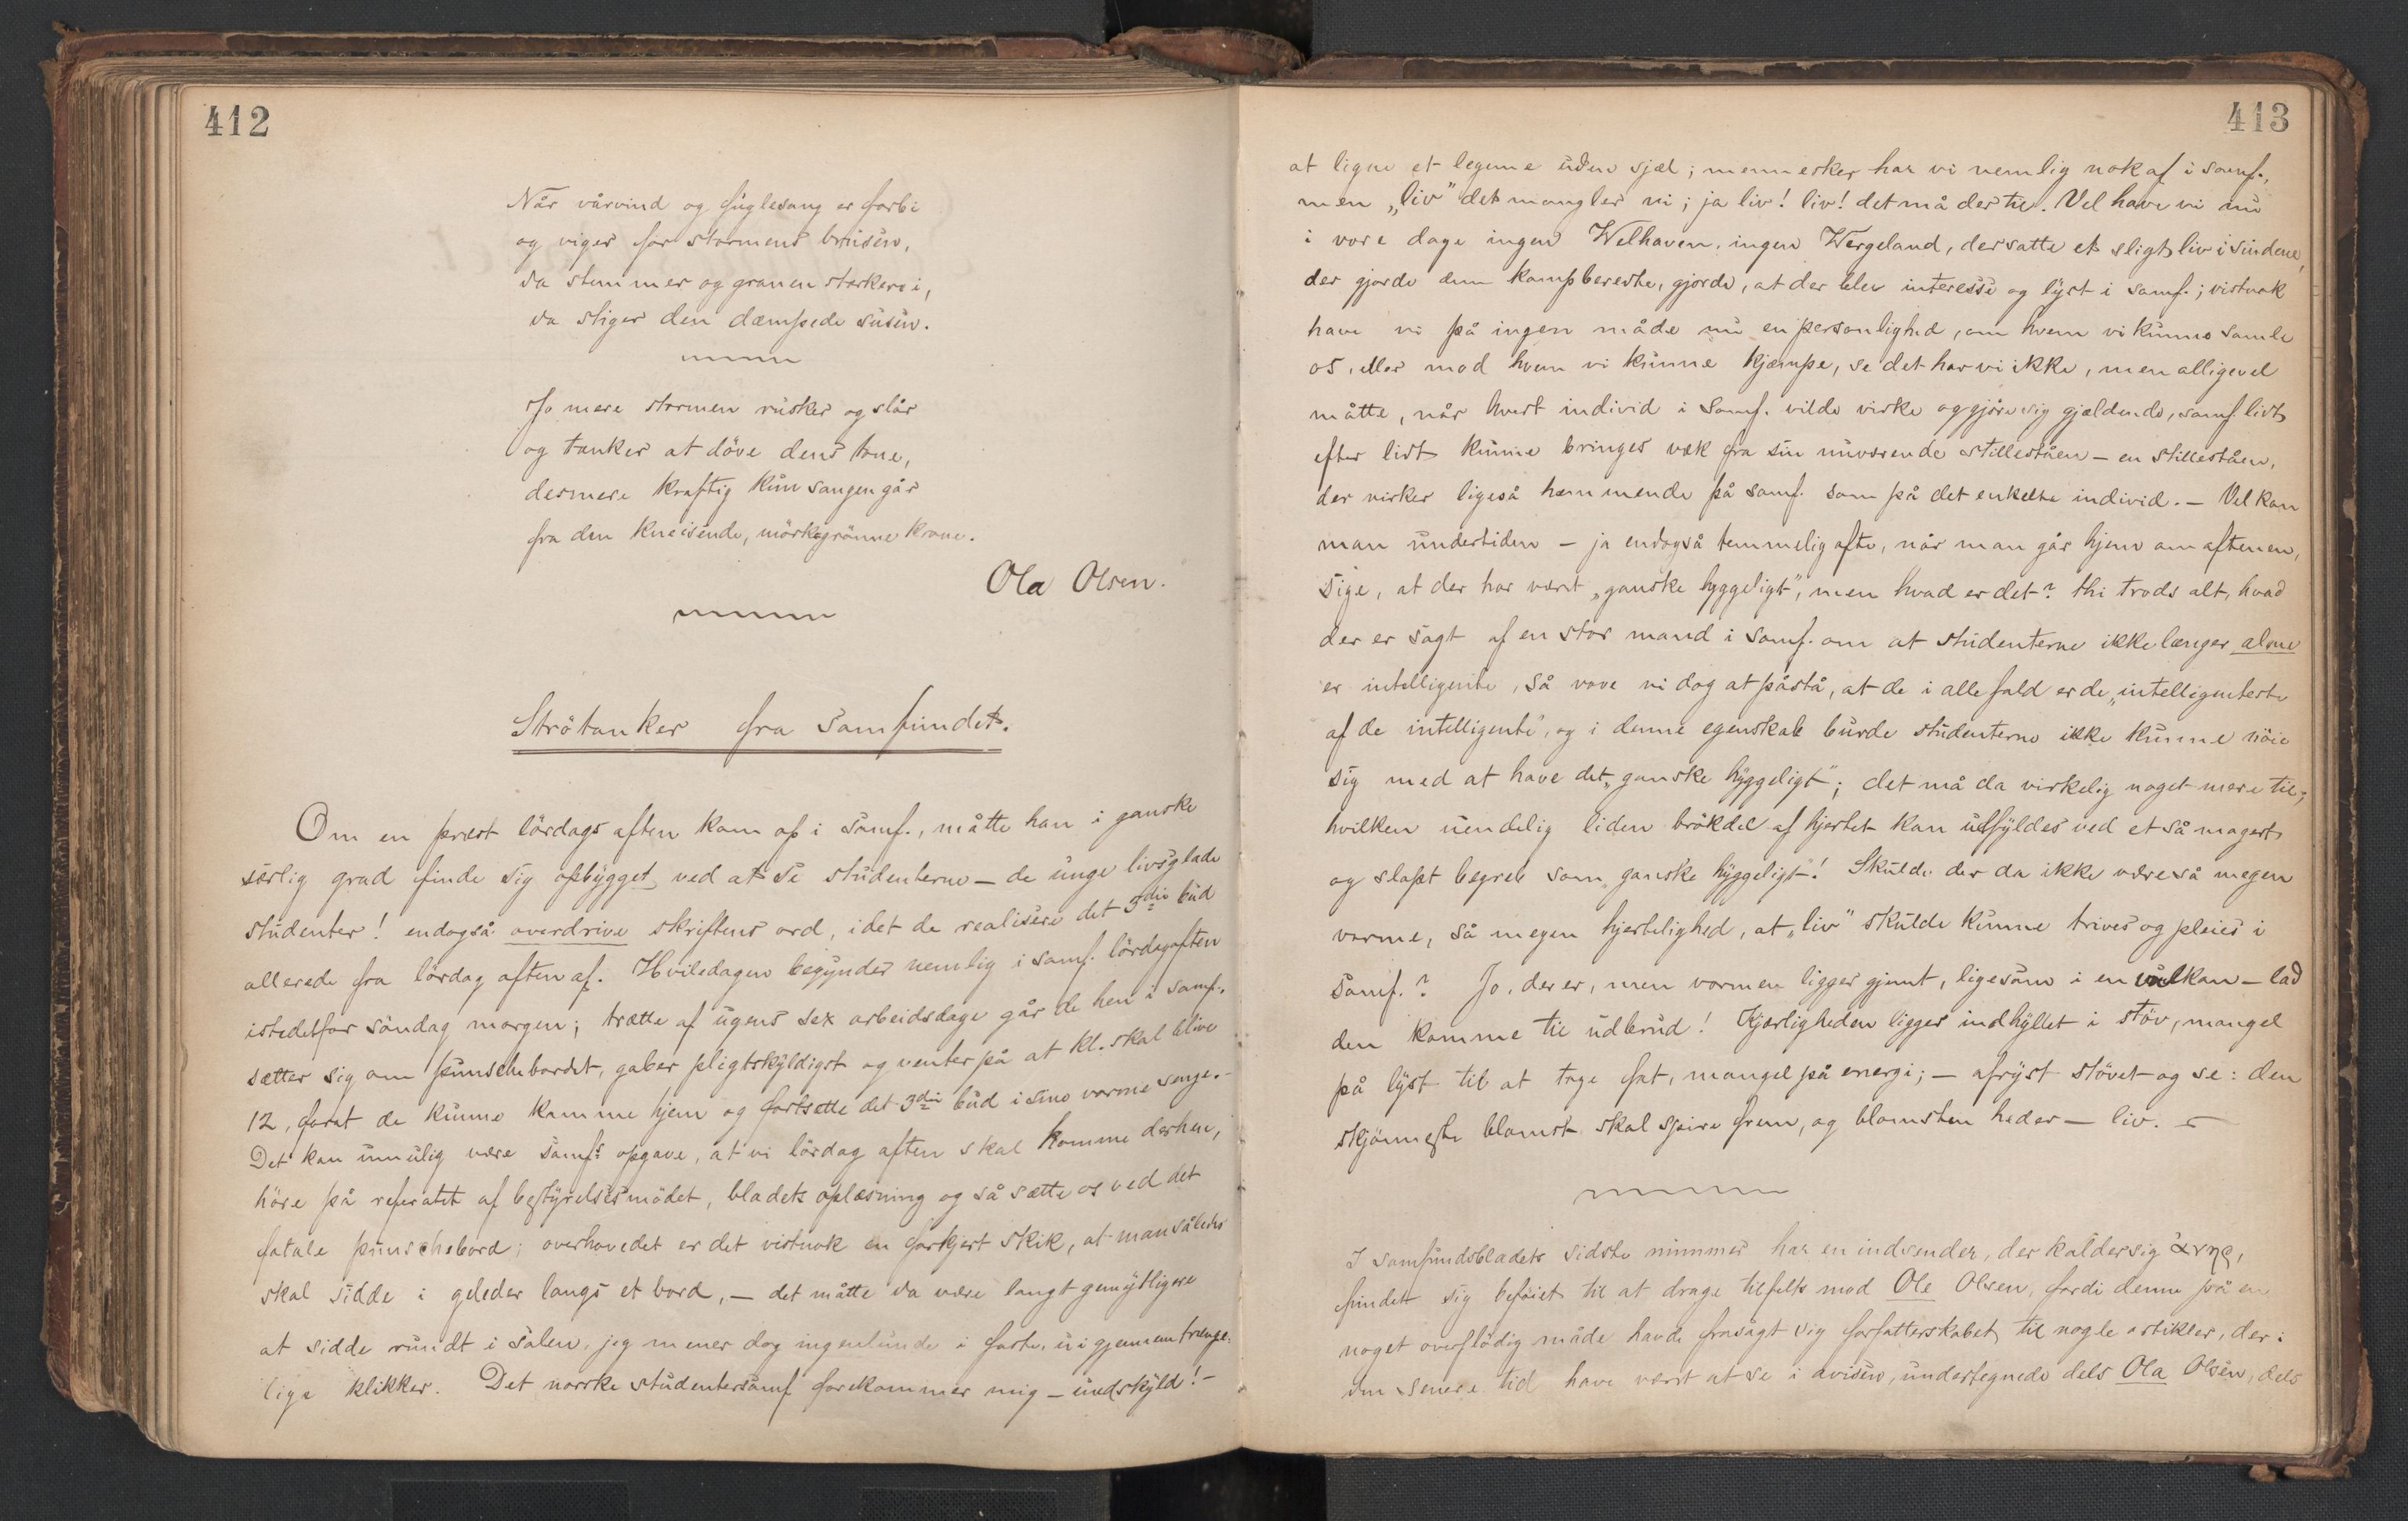 412
Når vårvind og fuglesang er forbi
og viger for stormens brusen,
da stemmer og granen stærkere i,
da stiger den dæmpede susen.
Jo mere stormen rusker og slår
og tænker at döve dens tone,
desmere kraftig kun sangen går
fra den kneisende, mörkegrönne krone.
Ola Olsen.
Strötanker fra samfundet.
Om en præst lördags aften kom op i samf., måtte han i ganske
særlig grad finde sig opbygget ved at se studenterne – de unge livsglade
studenter! endogså overdrive skriftens ord, idet de realisere det 3die bud
allerede fra lördag aften af. Hviledagen begynder nemlig i samf. lördagaften
istedetfor söndag morgen; trætte af ugens sex arbeidsdage går de hen i samf.,
sætter sig om punschebordet, gaber pligtskyldigst og venter på at kl. skal blive
12, forat de kunne komme hjem og fortsætte det 3die bud i sine varme senge. –
Det kan umulig være samf:s opgave, at vi lördag aften skal komme derhen,
höre på referatet af bestyrelsesmödet, bladets oplæsning og så sætte os ved det
fatale punschebord; overhovedet er det vistnok en forkjert skik, at man således
skal sidde i geleder langs et bord, – det måtte da være langt gemytligere
at sidde rundt i salen, jeg mener dog ingenlunde i faste, uigjennemtrænge-
lige klikker. Det norske studentersamf forekommer mig – undskyld! –
413
at ligne et legeme uden sjæl; mennesker har vi nemlig nok af i samf.,
men „liv" det mangler vi; ja liv! liv! det må der til. Vel have vi nu
i vore dage ingen Welhaven, ingen Wergeland, der satte et sligt liv i sindene,
der gjorde dem kampberedte, gjorde, at der blev interesse og lyst i samf.; vistnok
have vi på ingen måde nu en personlighed, om hvem vi kunne samle
os, eller mod hvem vi kunne kjæmpe, se det har vi ikke, men alligevel
måtte, når hvert individ i samf. vilde virke og gjöre sig gjældende, samf. lidt
efter lidt kunne bringes væk fra sin nuværende stilleståen – en stilleståen,
der virker ligeså hæmmende på samf. som på det enkelte individ. – Vel kan
man undertiden – ja endogså temmelig ofte, når man går hjem om aftenen,
sige, at der har været „ganske hyggeligt", men hvad er det? thi trods alt, hvad
der er sagt af en stor mand i samf. om at studenterne ikke længer alene
er intelligente, så vove vi dog at påstå, at de i alle fald er de „intelligenteste
af de intelligente", og i denne egenskab burde studenterne ikke kunne nöie
sig med at have det „ganske hyggeligt"; det må da virkelig noget mere til;
hvilken uendelig liden brökdel af hjertet kan udfyldes ved et så magert
og slapt begreb som „ganske hyggeligt"! Skulde der da ikke være så megen
varme, så megen hjertelighed, at „liv" skulde kunne trives og pleies i
samf.? Jo, der er, men varmen ligger gjemt, ligesom i en vulkan – lad
den komme til udbrud! Kjærligheden ligger indhyllet i stöv, mangel
på lyst til at tage fat, mangel på energi; – afryst stövet og se: den
skjönneste blomst skal spire frem, og blomsten heder – liv. –
I samfundsbladets sidste nummer har en indsender, der kalder sig
fundet sig beföiet til at drage tilfelts mod Ole Olsen, fordi denne på en
noget overflödig måde havde frasagt sig forfatterskabet til nogle artikler, der i
den senere tid have været at se i avisen, undertegnede dels Ola Olsen, dels